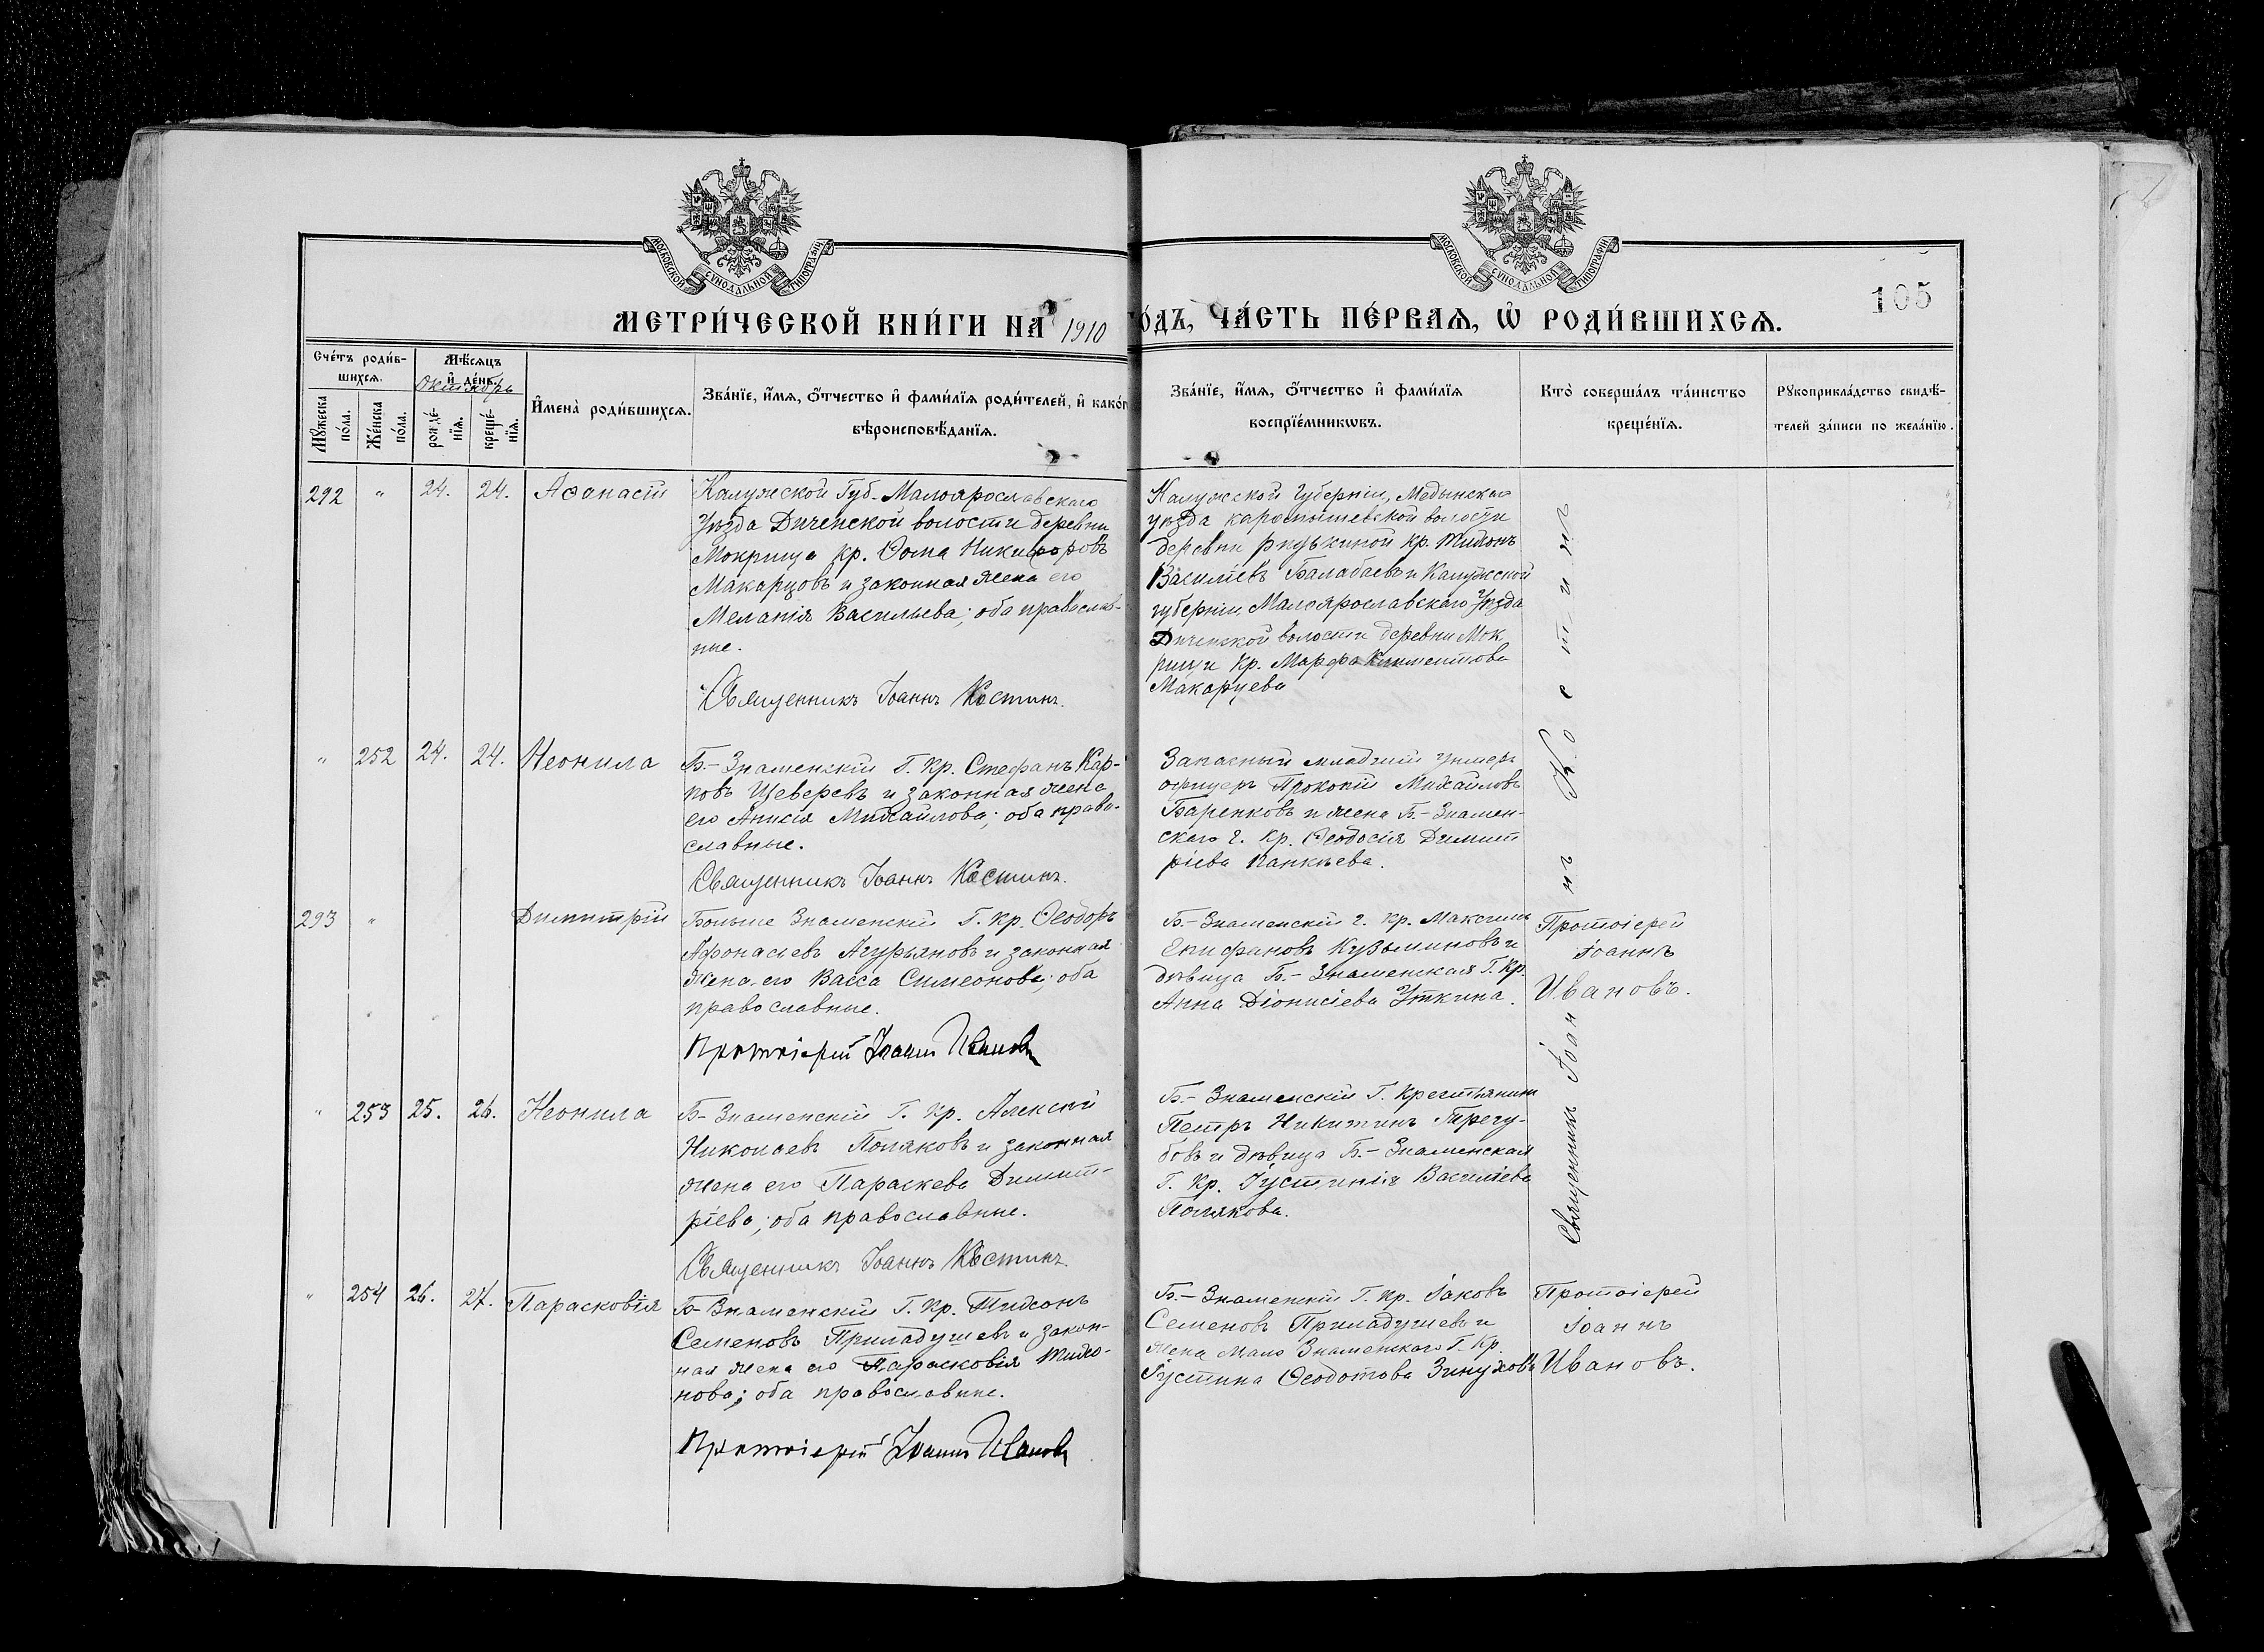 МОСКОВСКОЙ СѴНОДАЛЬНОЙ ТИПОГРАФІИ
МОСКОВСКОЙ СѴНОДАЛЬНОЙ ТИПОГРАФІИ
105
МЕТРИ́ЧЕСКОЙ КНИ́ГИ НА 1910 ГО́ДЪ, ЧА́СТЬ ПЕ́РВАѦ, Ѡ҆ РОДИ́ВШИХСѦ.
Сче́тъ роди́в-
шихсѧ.
Мѣ́сѧцъ
и҆ де́нь.
Октябрь
Мꙋ́жеска
по́ла.
Же́нска
по́ла.
рожде́-
нїѧ.
креще́-
нїѧ.
И҆мена̀ роди́вшихсѧ.
Зва́нїе, и҆́мѧ, ѻ҆́тчество и҆ фами́лїѧ роди́телей, и҆ како́г
вѣроисповѣ́данїѧ.
Зва́нїе, и҆́мѧ, ѻ҆́тчество и҆ фами́лїѧ
воспрїе́мникѡвъ.
Кто̀ соверша́лъ та́инство
креще́нїѧ.
Рꙋкоприкла́дство свидѣ́-
телей за́писи по жела́нїю.
292 " 24. 24. Аѳанасій
Калужской Губ. Малоярославскаго
Уѣзда Диченской волости деревни
Мокрища кр. Ѳома Никифоровъ
Макарцовъ и законная жена его
Меланія Васильева; оба православ-
ные.
Священникъ Іоаннъ Костинъ.
Калужской Губерніи, Медынскаго
уѣзда карамышевской волости
деревни кр. Тихонъ
Василіевъ Балабаевъ и Калужской
губерніи Малоярославскаго Уѣзда
Диченской волости деревни Мок
рищи Кр. Марфа Климентова
Макарцева
" 252 24. 24. Неонила
Б.-Знаменскій Г. Кр. Стефанъ Кар-
повъ Щеверевъ и законная жена
его Анисія Михайлова; оба право-
славные.
Священникъ Іоаннъ Костинъ.
Запасный младшій унтеръ
офицеръ Прокопій Михайловъ
Баренковъ и жена Б.-Знамен-
скаго Г. Кр. Ѳеодосія Димит
ріева Панкѣева.
293 " Димитрій
Больше Знаменскій Г. Кр. Ѳеодоръ
Афонасіевъ Агурьяновъ и законная
жена его Васса Симеонова; оба
православные.
Протоіерей Іоаннъ Ивановъ
Б.-Знаменскій Г. Кр. Максимъ
Епифановъ Кузьминовъ и
дѣвица Б.-Знаменская Г. Кр.
Анна Діонисіева Уткина.
Протоіерей
Іоаннъ
Ивановъ.
" 253 25. 26. Неонила
Б-Знаменскій Г. Кр. Алексій
Николаевъ Поляковъ и законная
жена его Параскева Димит-
ріева; оба православные.
Священникъ Іоаннъ Костинъ
Б.-Знаменскій Г. Крестьянинъ
Петръ Никитинъ Трегу-
бовъ и дѣвица Б.-Знаменская
Г. Кр. Іустинія Василіева
Полякова.
Священникъ Іоаннъ Костинъ
" 254 26. 27. Парасковія
Б-Знаменскій Г. Кр. Тихонъ
Семеновъ Приладушевъ и закон-
ная жена его Парасковія Тихо-
нова; оба православные.
Протоіерей Іоаннъ Ивановъ
Б.-Знаменскій Г. Кр. Іаковъ
Семеновъ Приладушевъ и
жена Мало Знаменскаго Г. Кр.
Іустина Ѳеодотова Зинухова
Протоіерей
Іоаннъ
Ивановъ.